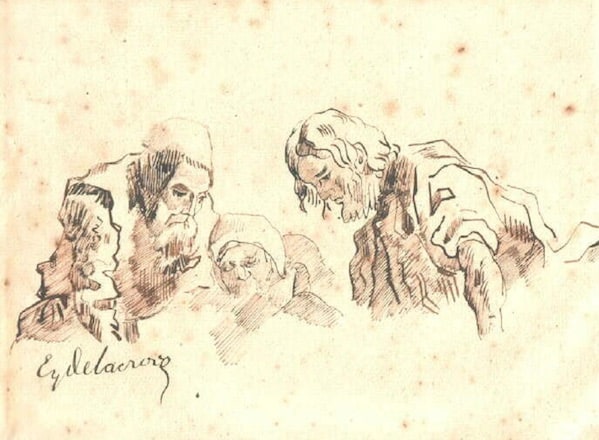 Eg Delacroix